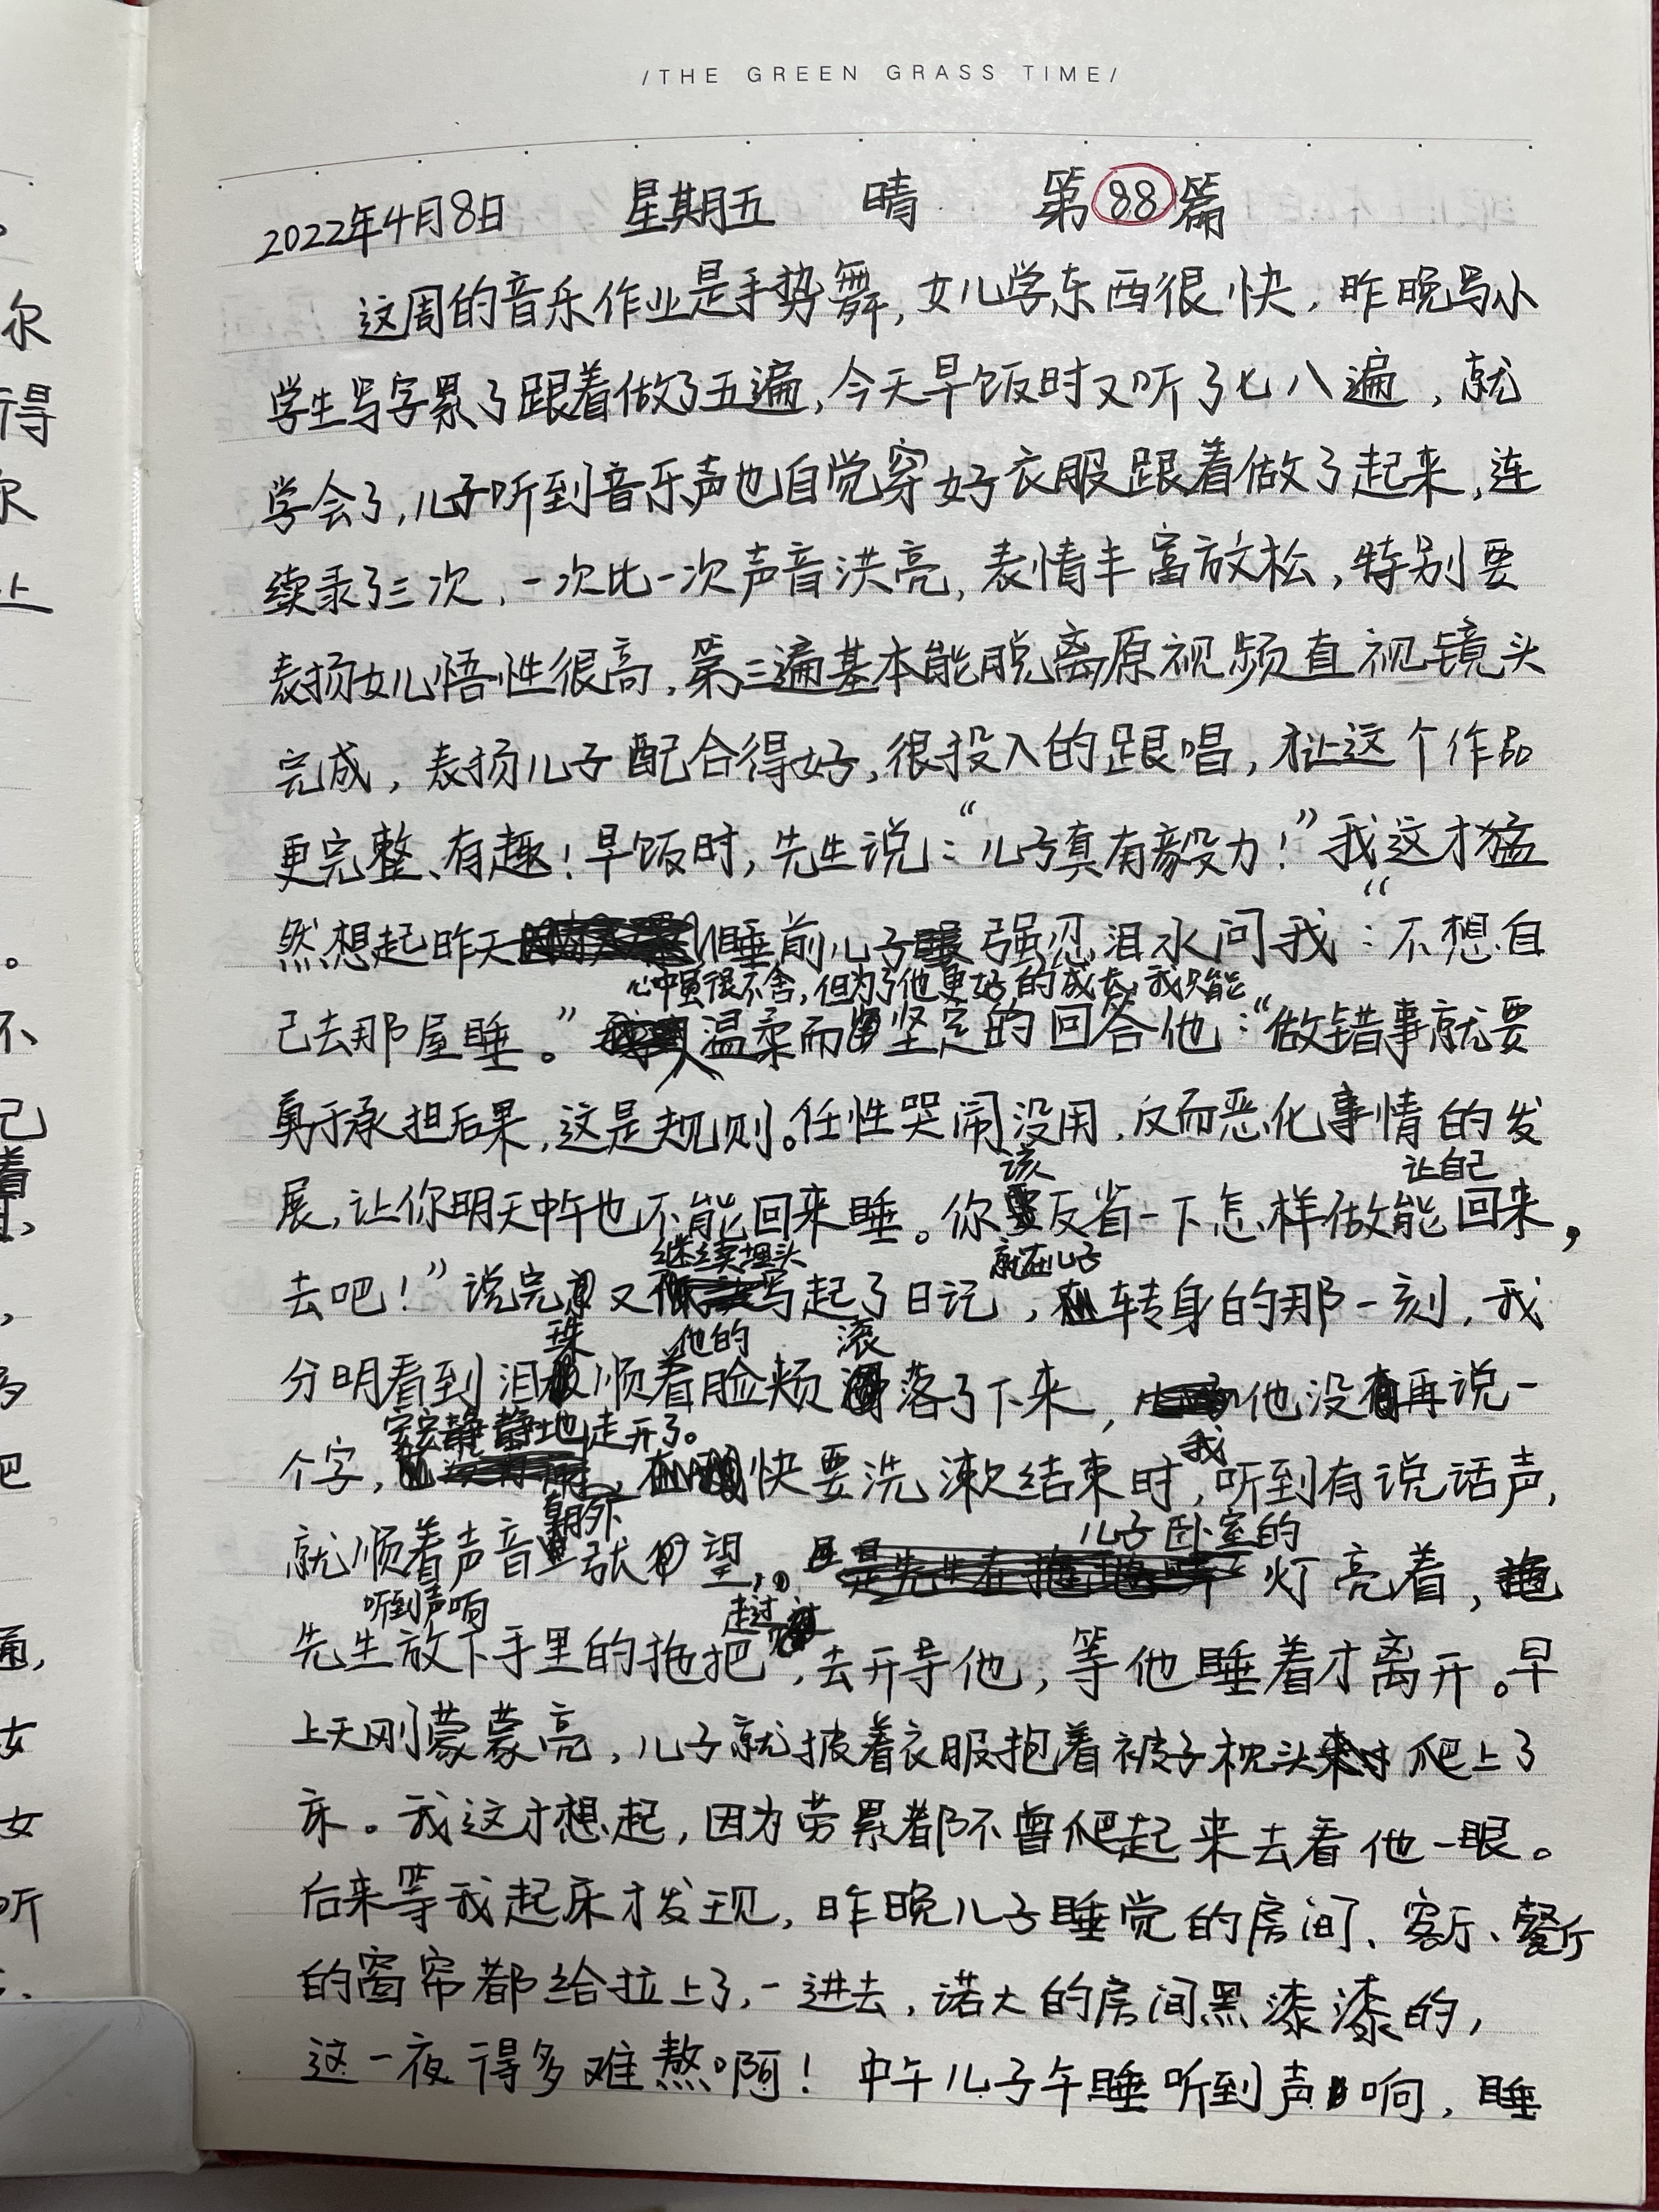 /THE GREEN GRASS TIME/
2022年4月8日 星期五 晴 第88篇
这周的音乐作业是手势舞,女儿学东西很快,昨晚写小
学生写字累了跟着做了五遍,今天早饭时又听了七八遍,就
学会了,儿子听到音乐声也自觉穿好衣服跟着做了起来,连
续录了三次,一次比一次声音洪亮,表情丰富放松,特别要
表扬女儿悟性很高,第三遍基本能脱离原视频直视镜头
完成,表扬儿子配合得好,很投入的跟唱,才让这个作品
更完整、有趣!早饭时,先生说:“儿子真有毅力!”我这才猛
然想起昨天睡前儿子强忍泪水问我:“不想自
心中虽很不舍,但为了他更好的成长,我只能
己去那屋睡。”温柔而坚定的回答他:“做错事就要
勇于承担后果,这是规则。任性哭闹没用,反而恶化事情的发
该 让自己
展,让你明天中午也不能回来睡。你反省一下怎样做能回来,
继续埋头 就在儿子
去吧!”说完又写起了日记,转身的那一刻,我
珠 他的 滚
分明看到泪顺着脸颊落了下来,他没有再说一
安安静静地走开了。 我
个字,快要洗漱结束时,听到有说话声,
朝外 儿子卧室的
就顺着声音张望,灯亮着,
听到声响 走过
先生放下手里的拖把,去开导他,等他睡着才离开。早
上天刚蒙蒙亮,儿子就披着衣服抱着被子枕头爬上了
床。我这才想起,因为劳累都不曾爬起来去看他一眼。
后来等我起床才发现,昨晚儿子睡觉的房间、客厅、餐厅
的窗帘都给拉上了,一进去,诺大的房间黑漆漆的,
这一夜得多难熬啊!中午儿子午睡听到声响,睡